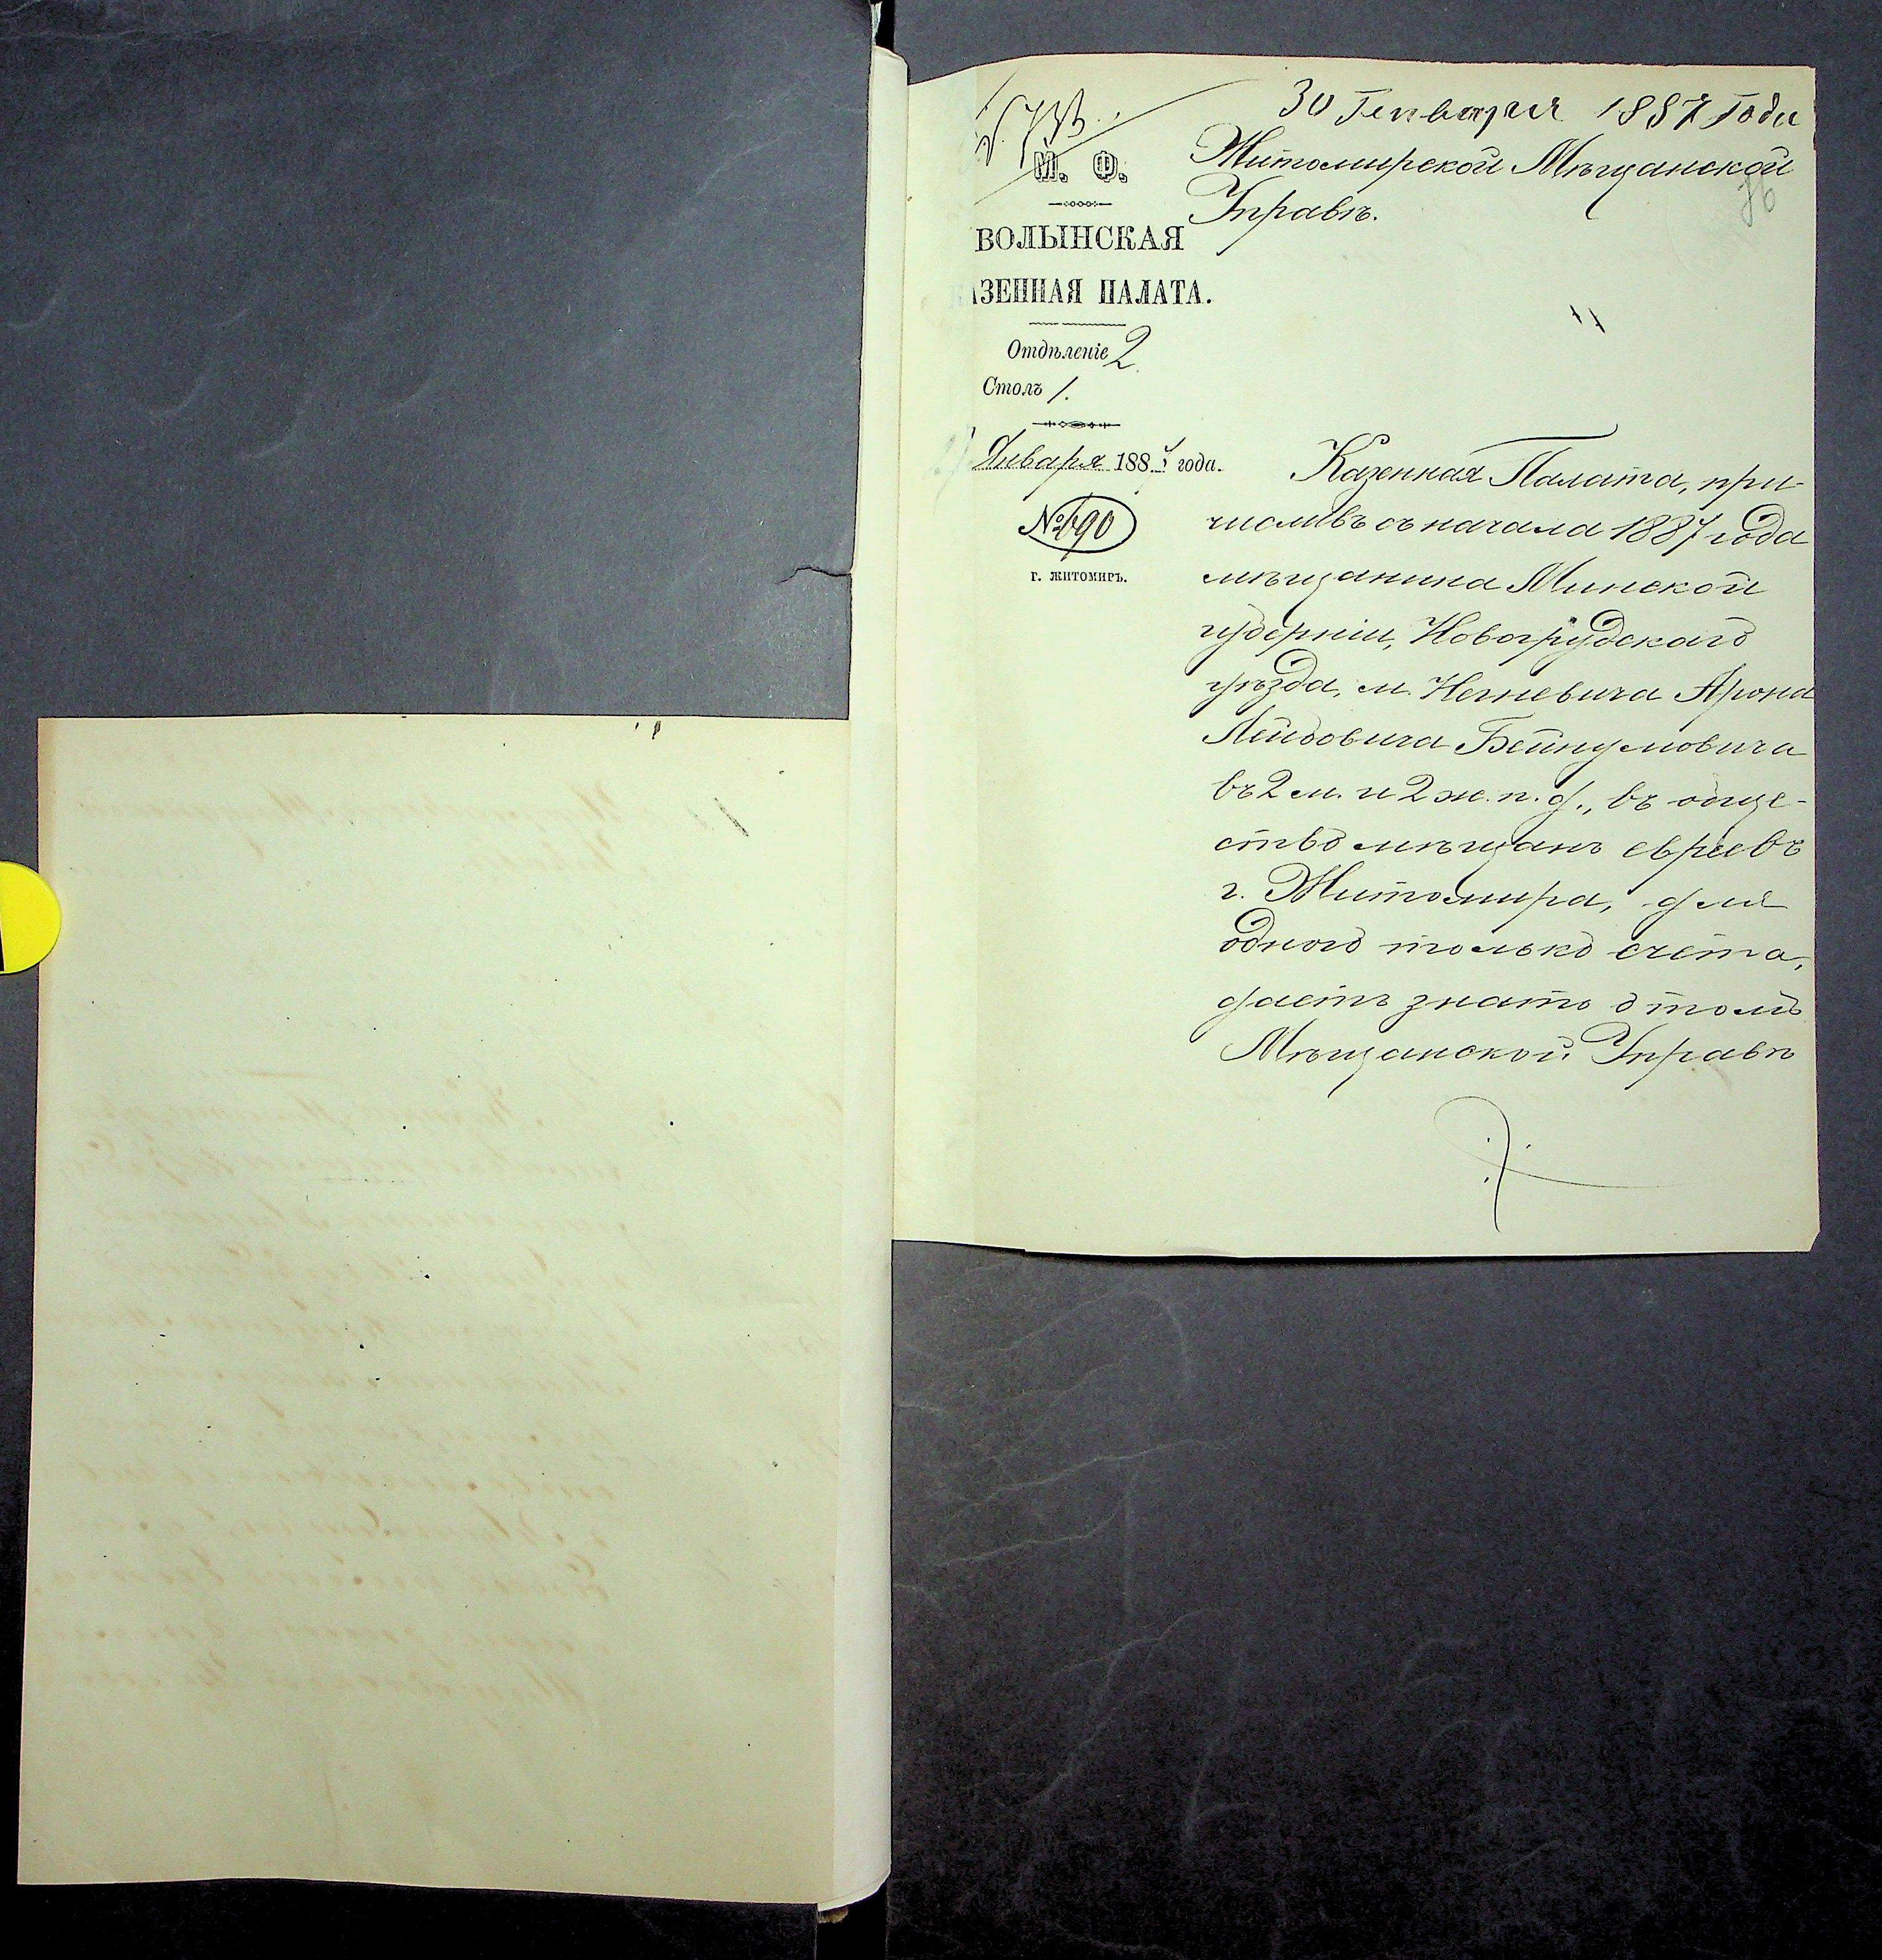 30 Генваря 1887 Года
Житомирской Мѣщанской
Управѣ.
36
М. Ф.
ВОЛЫНСКАЯ
КАЗЕННАЯ ПАЛАТА.
Отдѣленіе 2
Столъ 1.
Января 1887 года.
№ 690
г. ЖИТОМИРЪ.
Казенная Палата, при-
числивъ съ начала 1887 года
мѣщанина Минской
губерніи, Новогрудскаго
уѣзда, м. Негневича Арона
Лейбовича Бейнусовича
въ 2 м. и 2 ж. п. д., въ обще-
ство мѣщанъ евреевъ
г. Житомира, для
одного только счета,
даетъ знать о томъ
Мѣщанской Управѣ